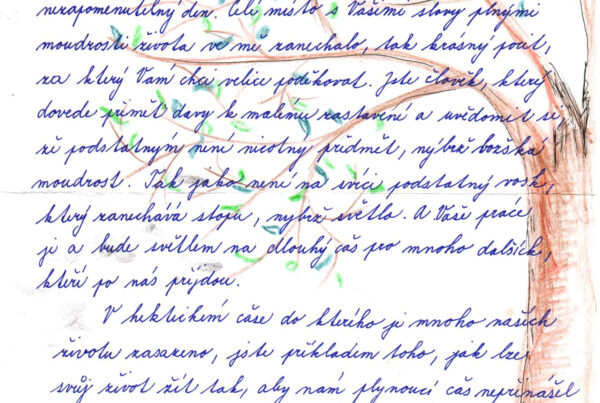 nezapomenutelný den. Celé místo s Vašimi slovy plnými
moudrosti života ve mě zanechalo, tak krásný pocit,
za který Vám chci velice poděkovat. Jste člověk, který
dovede přimět davy k malému zastavení a uvědomit se,
že podstatným není nicotný předmět, nýbrž božská
moudrost. Tak jako není na svíci podstatný vosk,
který zanechává stopu, nýbrž světlo. A Vaše práce
je a bude světlem na dlouhý čas pro mnoho dalších,
kteří po nás přijdou.
V hektickém čase do kterého je mnoho našich
životů zasazeno, jste příkladem toho, jak lze
svůj život žít tak, aby nám plynoucí čas nepřinášel